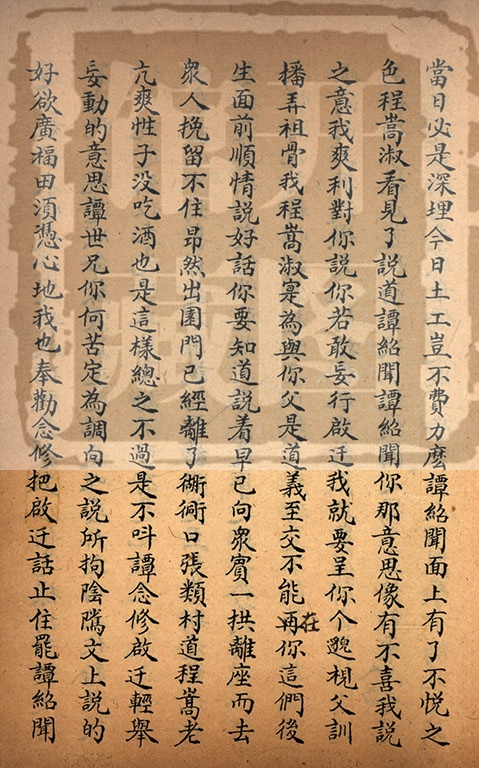 當日必是深埋今日土工豈不費力麽譚紹聞面上有了不悦之
色程嵩淑看見了說道譚紹聞譚紹聞你那意思像有不喜我說
之意我爽利對你說你若敢妄行啟迁我就要呈你个邈視父訓
播弄祖骨我程嵩淑寔為與你父是道義至交不能再在你這們後
生面前順情說好話你要知道說着早已向衆賓一拱離座而去
衆人挽留不住昻然出園門已經離了衚衕口張類村道程嵩老
亢爽性子没吃酒也是這樣總之不過是不呌譚念修啟迁輕舉
妄動的意思譚世兄你何苦定為調向之說所拘陰隲文上說的
好欲廣福田須憑心地我也奉勸念修把啟迁話止住罷譚紹聞